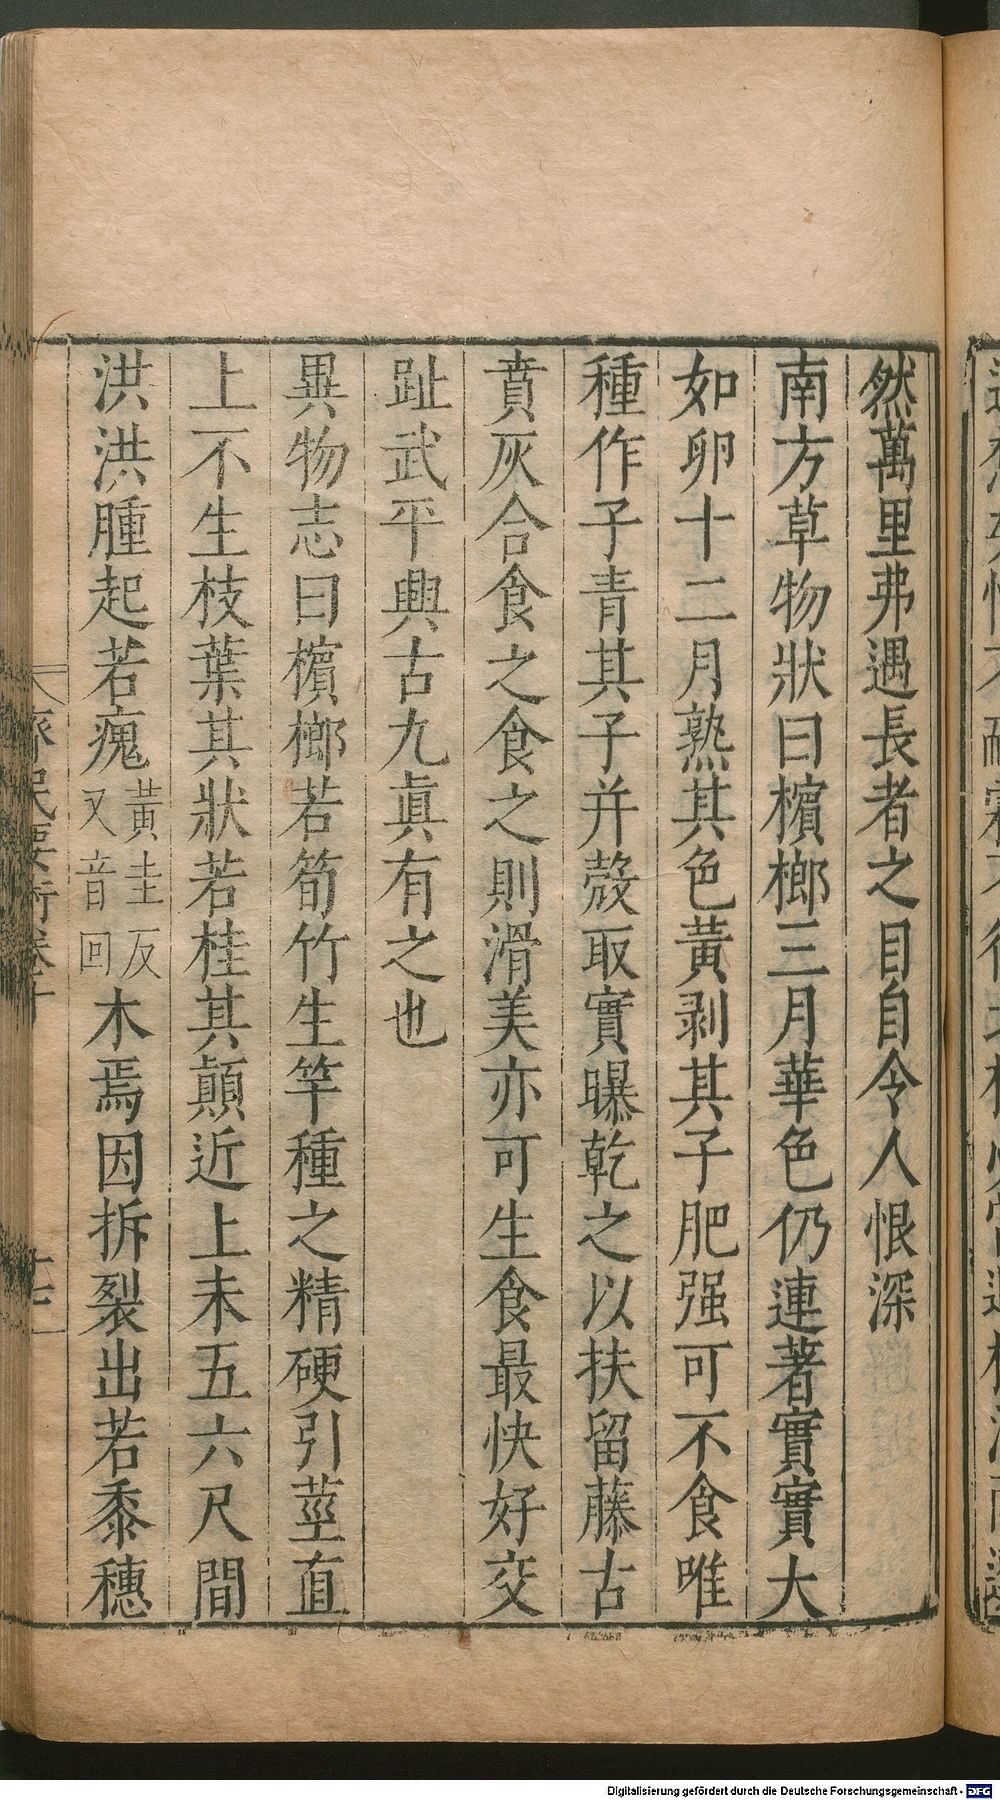 然萬里弗遇長者之目自令人恨深
南方草物狀曰檳榔三月華色仍連著實實大
如卵十二月熟其色黃剥其子肥强可不食唯
種作子青其子并殼取實曝乾之以扶留藤古
賁灰合食之食之則滑美亦可生食最快好交
趾武平興古九眞有之也
異物志曰檳榔若筍竹生竿種之精硬引莖直
上不生枝葉其狀若桂其顛近上未五六尺間
洪洪腫起若瘣黃圭反又音回木焉因拆裂出若黍穗
齊民要術卷十
Digitalisierung gefördert durch die Deutsche Forschungsgemeinschaft - DFG